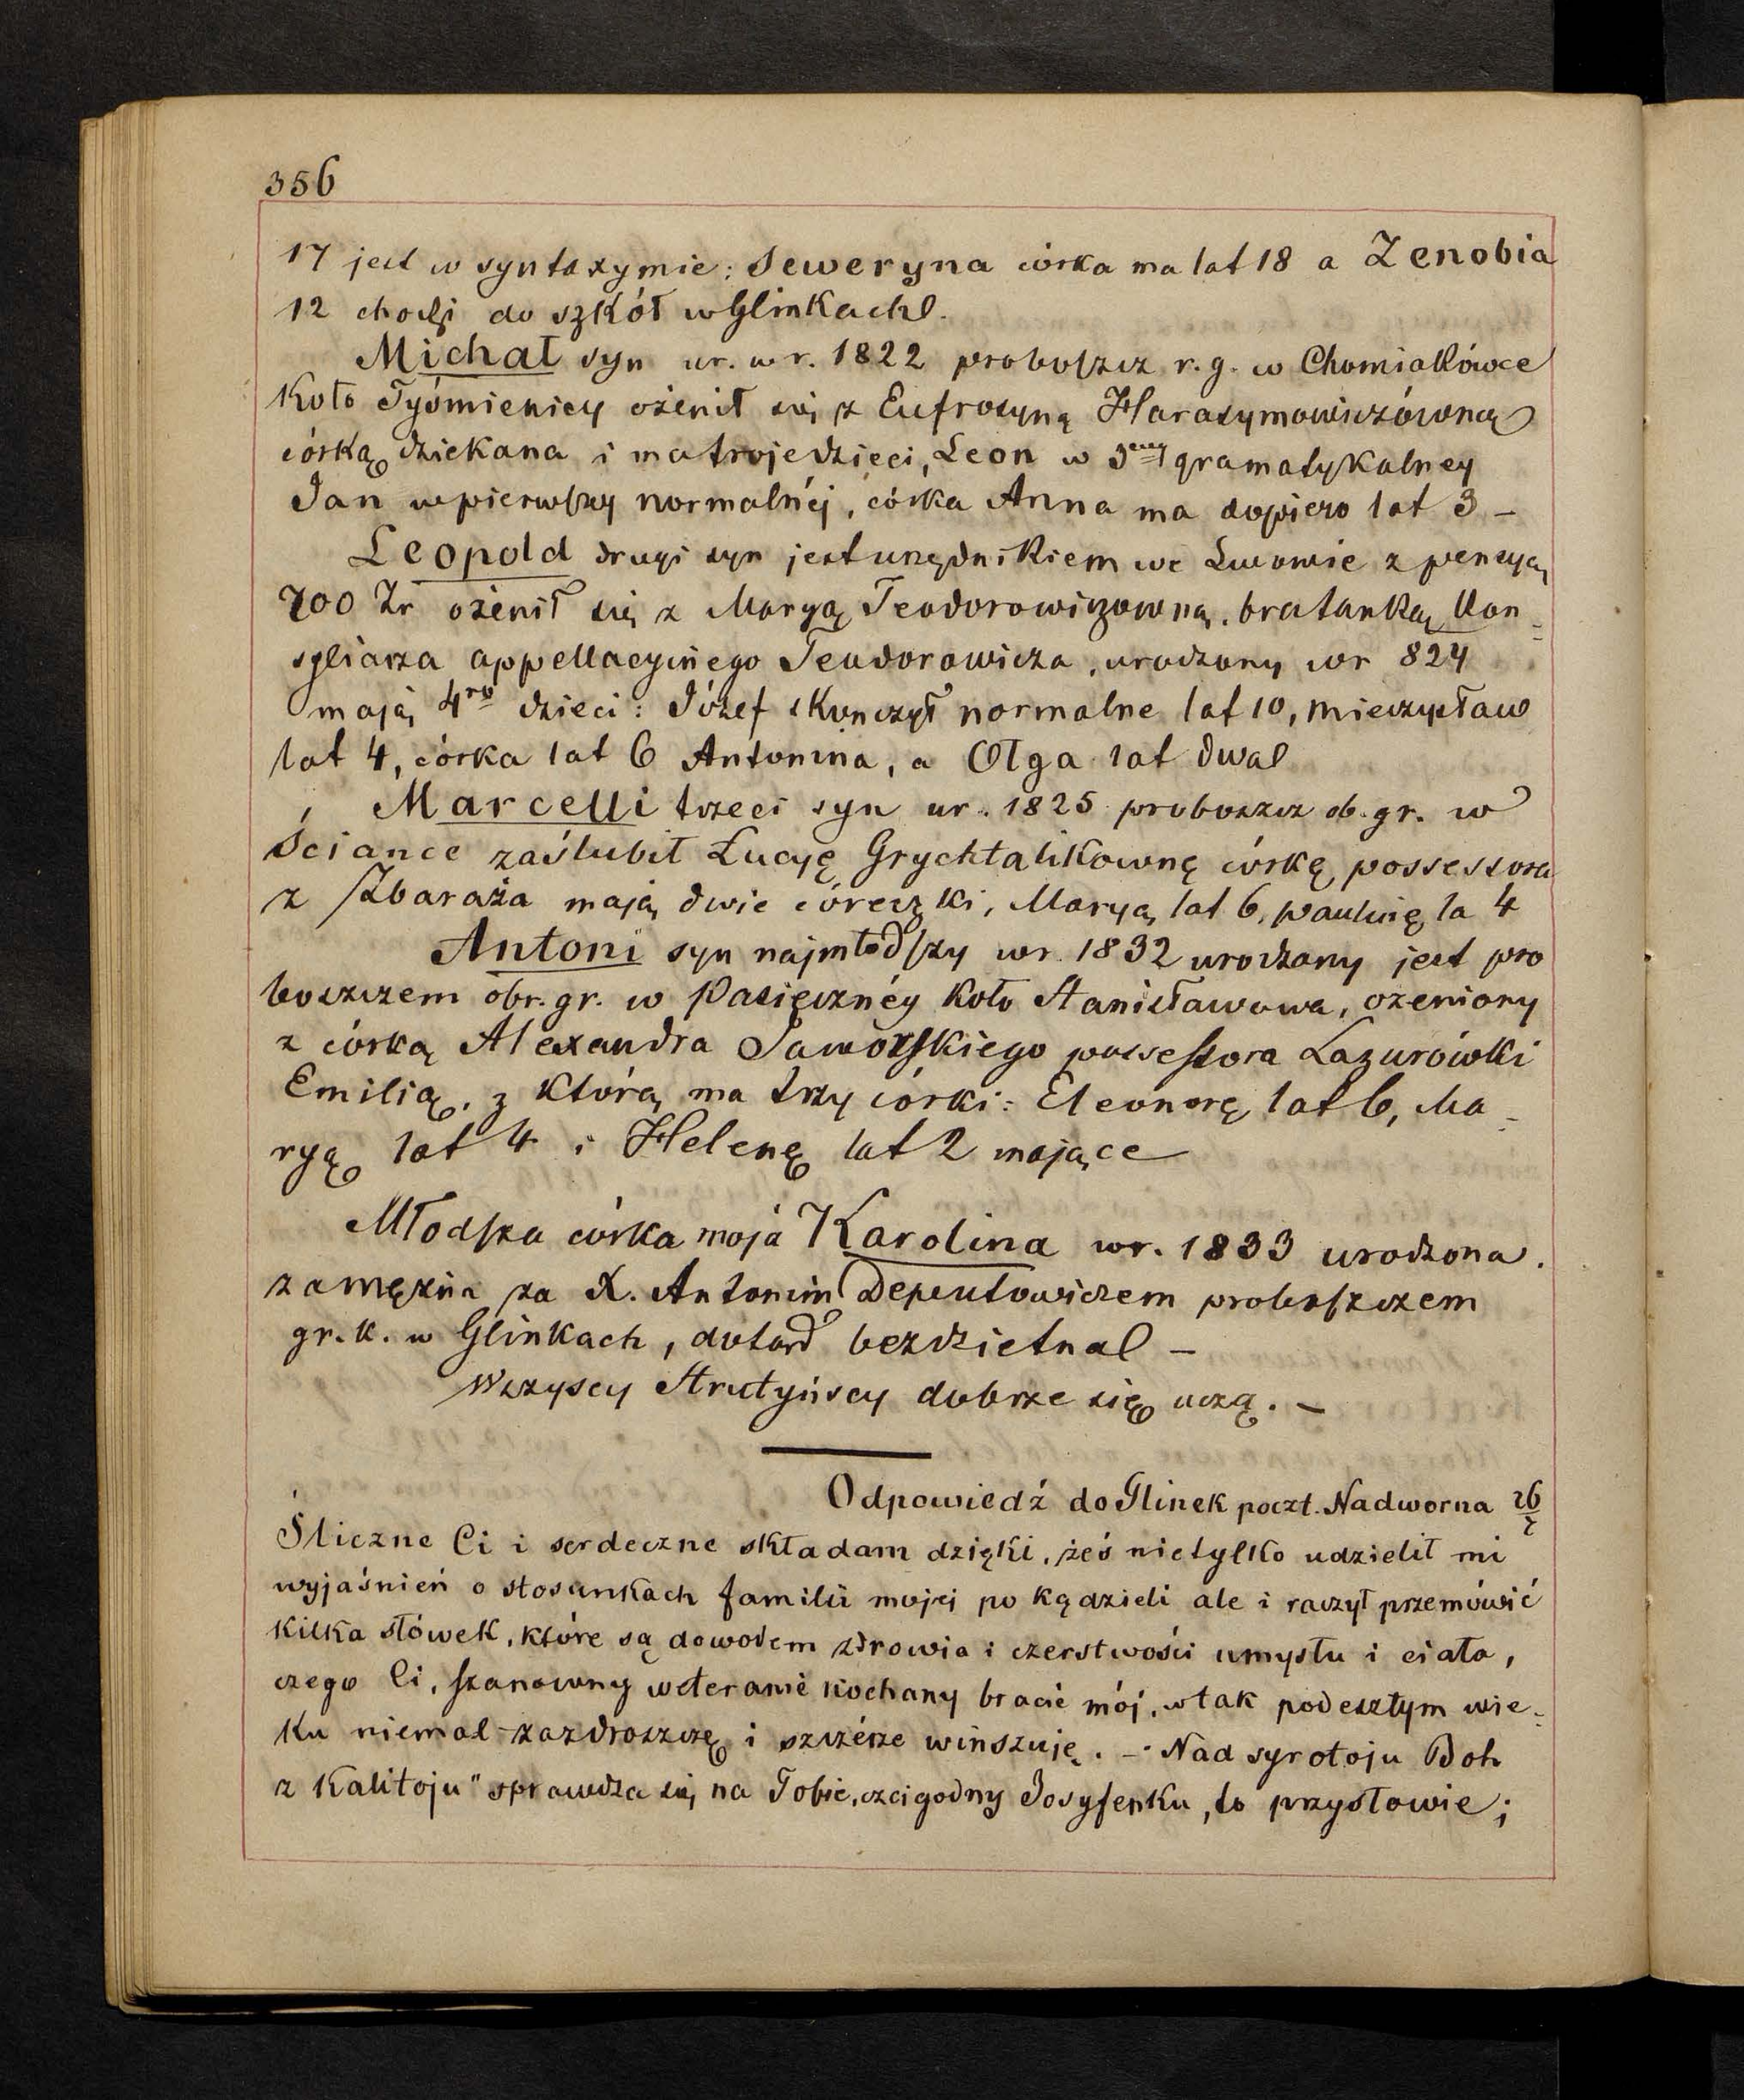 356
17 jest w syntaxymie; Seweryna córka ma lat 18 a Zenobia
12 chodzi do szkół w Glinkach.
Michał syn ur. w r. 1822 proboszcz r. g. w Chomiakówce
koło Tyśmienicy ożenił się z Eufrozyną Harasymowiczówną
córką dziekana i ma troje dzieci, Leon w 3ciej gramatykalney
Jan w pierwszy normalnéj, córka Anna ma dopiero lat 3 –
Leopold drugi syn jest urzędnikiem we Lwowie z pensyą
700 Zr ożenił się z Maryą Teodorowiczowną, bratanką Kon-
syliarza appellacyjnego Teodorowicza, urodzony w r 824
mają 4ro dzieci: Józef skończył normalne lat 10, Mieczysław
lat 4, córka lat 6 Antonina, a Olga lat dwa
Marcelli trzeci syn ur. 1825 proboszcz ob. gr. w
Ściance zaślubił Łucyę Grychtalikownę córkę possessora
z Zbaraża mają dwie córeczki, Maryą lat 6, Paulinę la 4
Antoni syn najmłodszy w r. 1832 urodzony jest pro
boszczem obr. gr. w Pasiecznéy koło Stanisławowa, ożeniony
z córką Alexandra Jaworskiego possessora Łazurówki
Emilią, z którą ma trzy córki: Eleonorę lat 6, Ma-
ryą lat 4 i Helenę lat 2 mające
Młodsza córka moja Karolina w r. 1833 urodzona.
zamężna za X. Antonim Deputowiczem proboszczem
gr. k. w Glinkach, dotąd bezdzietna –
Wszyscy Strutyńscy dobrze się uczą. –
Odpowiedź do Glinek poczt. Nadworna 26/7
Śliczne Ci i serdeczne składam dzięki, żeś nietylko udzielił mi
wyjaśnień o stosunkach familii mojej po kądzieli ale i raczył przemówić
kilka słówek, które są dowodem zdrowia i czerstwości umysłu i ciała,
czego Ci, szanowny weteranie kochany bracie mój, w tak podeszłym wie-
ku niemal zazdroszczę i szczérze winszuję. – Nad syrotoju Boh
z kalitoju" sprawdza się na Tobie, czcigodny Josyfenku, to przysłowie;